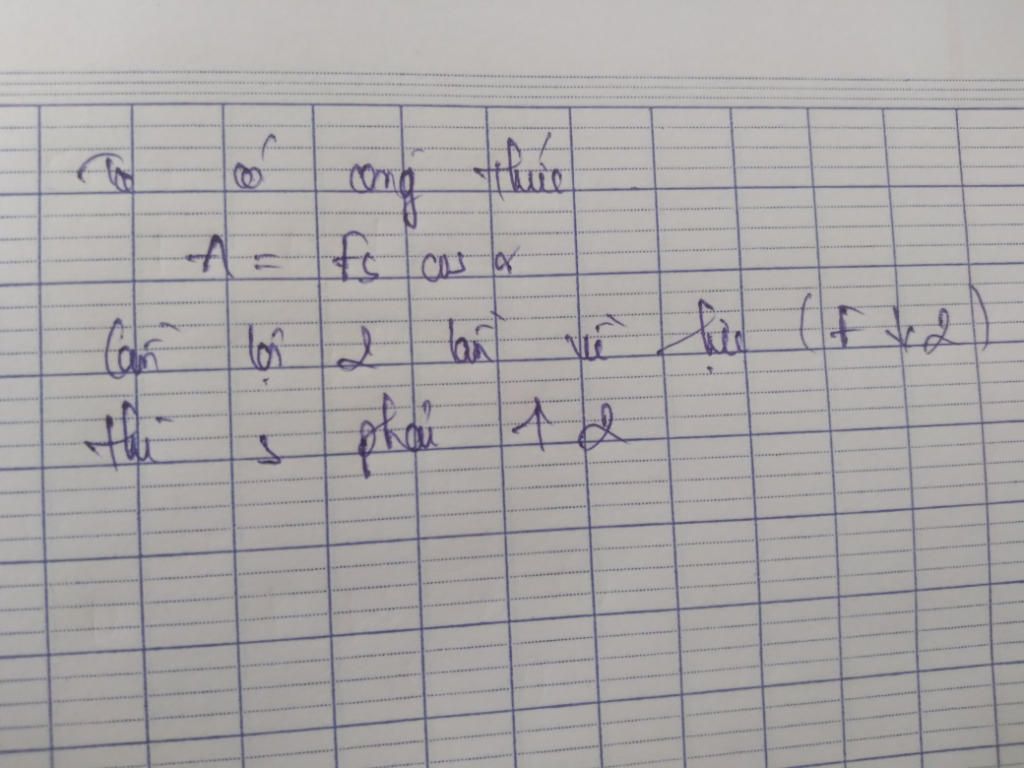 Ta có công thức
A = Fs cos α
Cần lợi 2 lần về lực (F ↓ 2)
thì s phải ↑ 2